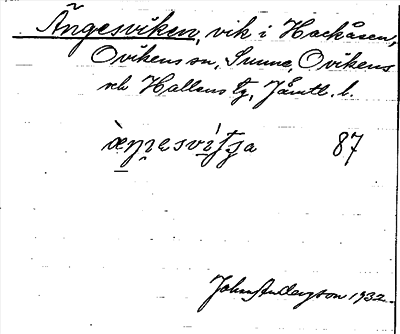 Ängesviken, vik i Hackåsen,
Ovikens sn, Sunne, Ovikens
och Hallens tg, Jämtl. l.
87
John Anderson 1932.